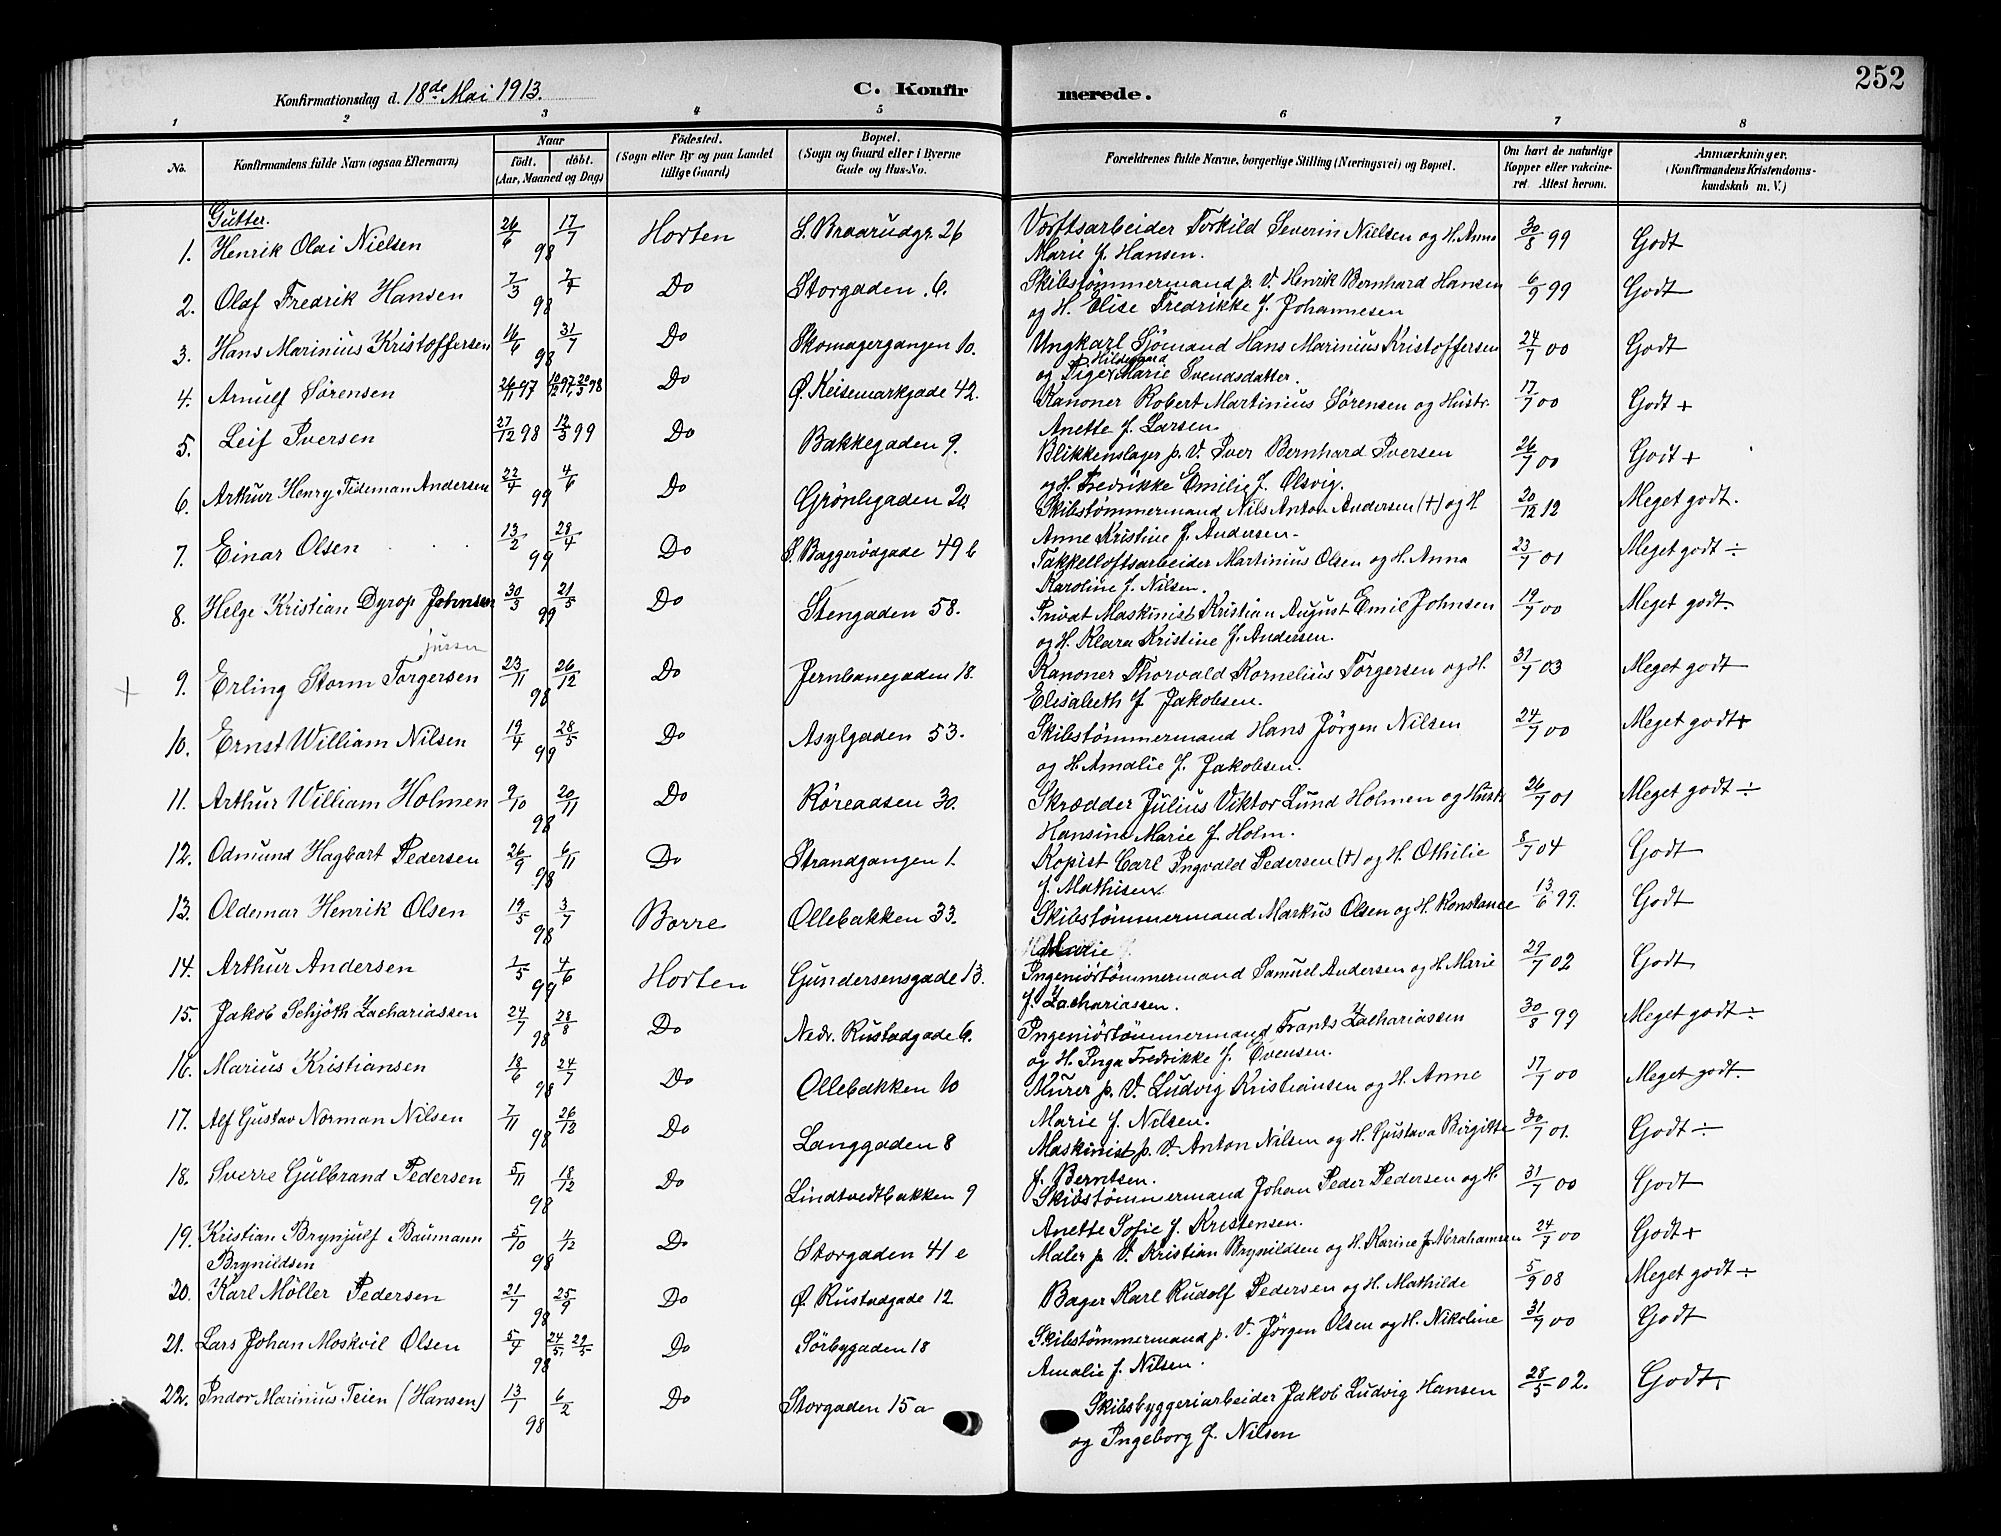 252
Konfirmationsdag d. 18de Mai 1913. C. Konfirmerede.
1 2 3 4 5 6 7 8
No. Konfirmandens fulde Navn (ogsaa Efternavn) Naar födt. döbt. (Aar, Maaned og Dag) Födested. (Sogn eller By og paa Landet tillige Gaard) Bopæl. (Sogn og Gaard eller i Byerne Gade og Hus-No. Forældrenes fulde Navne, borgerlige Stilling (Næringsvei) og Bopæl. Om havt de naturlige Kopper eller vakcineret Attest herom. Anmærkninger. (Konfirmandens Kristendomskundskab m. V.)
Gutter.
1. Henrik Olai Nielsen 26/6 98 17/7 Horten S. Braarudgr. 26 Værftsarbeider Torkild Severin Nielsen og H. Anna 30/8 99 Godt
Marie f. Hansen.
2. Olaf Fredrik Hansen 7/3 98 7/4 Do Storgaden 6. Skibstømmermand p. V. Henrik Bernhard Hansen 6/9 99 Godt
og H. Elise Fredrikke f. Johannesen
3. Hans Marinius Kristoffersen 16/6 98 31/7 Do Skomagergangen 10. Ungkarl Sjömand Hans Marinius Kristoffersen 24/7 00 Godt
og Pige Hildegaard Marie Svendsdatter.
4. Arnulf Sørensen 26/11 97 10/12 97, 20/3 98 Do Ø. Keisemarkgade 42. Kanoner Robert Martinius Sørensen og Hustr. 17/7 00 Godt +
Anette f. Larsen.
5. Leif Iversen 27/12 98 12/3 99 Do Bakkegaden 9. Blikkenslager p. V. Iver Bernhard Iversen 26/7 00 Godt +
og H. Fredrikke Emilie f. Olsvig.
6. Arthur Henry Tideman Andersen 22/4 99 4/6 Do Grönligaden 20 Skibstømmermand Nils Anton Andersen (†) og H 20/12 12 Meget godt.
Anne Kristine f. Andersen.
7. Einar Olsen 13/2 99 28/4 Do S. Baggerödgade 49 b Takkelloftsarbeider Martinius Olsen og H. Anna 23/7 01 Meget godt ÷
Karoline f. Nilsen.
8. Helge Kristian Dyrop Johnsen 30/3 99 21/5 Do Stengaden 58. Privat Maskinist Kristian August Emil Johnsen 19/7 00 Meget godt.
og H. Klara Kristine f. Andersen.
+ 9. Erling Storm Torgersen 23/11 98 26/12 Do Jernbanegaden 18. Kanoner Thorvald Kornelius Torgersen og H. 31/7 03 Meget godt
Elisabeth f. Jakobsen.
10. Ernst William Nilsen 19/4 99 28/5 Do Asylgaden 53. Skibstømmermand Hans Jörgen Nilsen 24/7 00 Meget godt +
og H. Amalie f. Jakobsen.
11. Arthur William Holmen 9/10 98 20/11 Do Röreaasen 30. Skrædder Julius Viktor Lund Holmen og Hustr. 26/7 01 Meget godt ÷
Hansine Marie f. Holm.
12. Odmund Hagbart Pedersen 26/9 98 6/11 Do Strandgangen 1. Kopist Carl Ingvald Pedersen (†) og H. Othilie 8/7 04 Godt
f. Mathisen.
13. Oldemar Henrik Olsen 19/5 98 3/7 Borre Ollebakken 33. Skibstømmermand Markus Olsen og H. Konstance 13/6 99. Godt
Marie
14. Arthur Andersen 1/5 99 4/6 Horten Gundersensgade 13. Ingeniörtømmermand Samuel Andersen og H. Marie 29/7 02 Godt
f. Zachariassen.
15. Jakob Schjöth Zachariassen 24/7 98 28/8 Do Nedr. Rustadgade 6. Ingeniörtømmermand Frants Zachariassen 30/8 99 Meget godt ÷
og H. Inga Fredrikke f. Evensen.
16. Marius Kristiansen 18/6 98 24/7 Do Ollebakken 10 Murer p. V. Ludvig Kristiansen og H. Anne 17/7 00 Meget godt.
Marie f. Nilsen.
17. Alf Gustav Norman Nilsen 7/11 98 26/12 Do Langgaden 8 Maskinist p. V. Anton Nilsen og H. Gustava Birgitte 30/7 01. Godt ÷
f. Berntsen.
18. Sverre Gulbrand Pedersen 5/11 98 18/12 Do Lindtvedtbakken 9 Skibstømmermand Johan Peder Pedersen og H. 31/7 00 Godt
Anette Sofie f. Kristensen.
19. Kristian Brynjulf Baumann 5/10 98 4/12 Do Storgaden 41 e Maler p. V. Kristian Brynildsen og H. Karine f. Abrahamsen 24/7 00 Godt +
Brynildsen
20. Karl Möller Pedersen 21/7 98 25/9 Do Ø. Rustadgade 12 Bager Karl Rudolf Pedersen og H. Mathilde 5/9 08 Meget godt ÷
21. Lars Johan Moskvil Olsen 5/4 98 24/5. 29/5 Do Sörbygaden 18 Skibstømmermand p. V. Jörgen Olsen og H. Nikoline 31/7 00 Godt
Amalie f. Nilsen.
22. Indor Marinius Teien (Hansen) 13/1 98 6/2 Do Storgaden 15 a Skibsbyggeriarbeider Jakob Ludvig Hansen 28/5 02. Godt.
og Ingeborg f. Nilsen